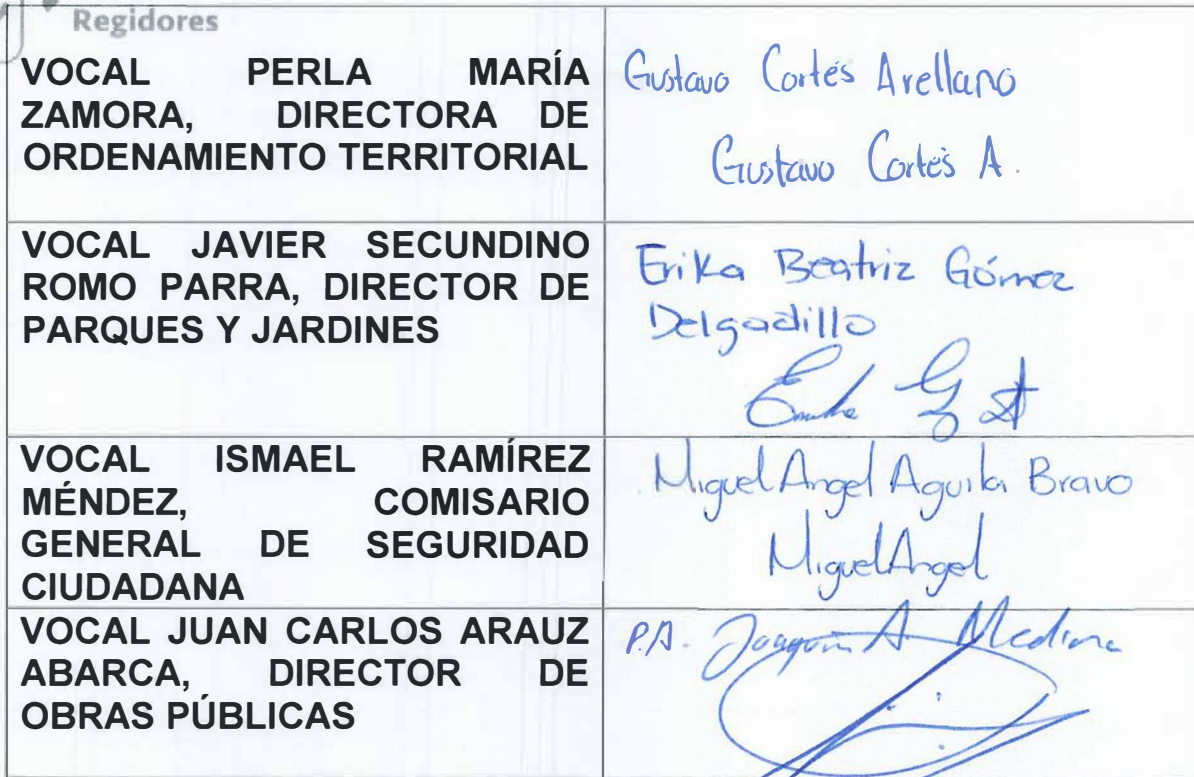 Regidores
VOCAL PERLA MARÍA
ZAMORA, DIRECTORA DE
ORDENAMIENTO TERRITORIAL
Gustavo Cortés Arellano
Gustavo Cortés A.
VOCAL JAVIER SECUNDINO
ROMO PARRA, DIRECTOR DE
PARQUES Y JARDINES
Erika Beatriz Gómez
Delgadillo
VOCAL ISMAEL RAMÍREZ
MÉNDEZ, COMISARIO
GENERAL DE SEGURIDAD
CIUDADANA
Miguel Angel Aguila Bravo
Miguel Angel
VOCAL JUAN CARLOS ARAUZ
ABARCA, DIRECTOR DE
OBRAS PÚBLICAS
P.A. Joaquin A Medina